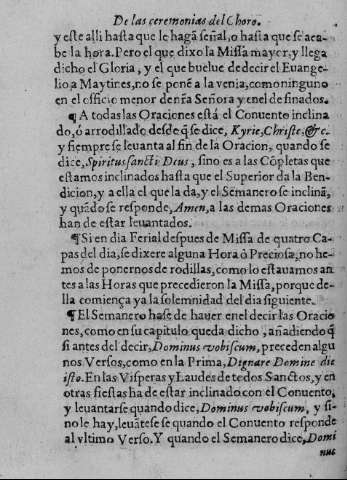 De las ceremonias del Choro.
y este alli hasta que le hagā señal, o hasta que se aca-
be la hora. Pero el que dixo la Missa mayor, y llega
dicho el Gloria, y el que buelue de decir el Euange-
lio a Maytines, no se ponē a la venia, como ninguno
en el officio menor de nr̄a Señora y en el de finados.
¶ A todas las Oraciones està el Conuento inclina
do, ò arrodillado desde q̄ se dice, Kyrie, Christe, &c.
y siempre se leuanta al fin de la Oracion, quando se
dice, Spiritus sancti Deus, sino es a las Cōpletas que
estamos inclinados hasta que el Superior da la Ben-
dicion, y a ella el que la da, y el Semanero se inclinā,
y quādo se responde, Amen, a las demas Oraciones
han de estar leuantados.
¶ Si en dia Ferial despues de Missa de quatro Ca-
pas del dia, se dixere alguna Hora ò Preciosa, no he-
mos de ponernos de rodillas, como lo estauamos an
tes a las Horas que precedieron la Missa, porque de-
lla comiença ya la solemnidad del dia siguiente.
¶ El Semanero hase de hauer en el decir las Oracio
nes, como en su capitulo queda dicho, añadiendo q̄
si antes del decir, Dominus vobiscum, preceden algu
nos Versos, como en la Prima, Dignare Domine die
isto. En las Visperas y Laudes de todos Sanctos, y en
otras fiestas ha de estar inclinado con el Conuento,
y leuantarse quando dice, Dominus vobiscum, y si-
no le hay, leuātese se quando el Conuento responde
al vltimo Verso. Y quando el Semanero dice, Domi
nus